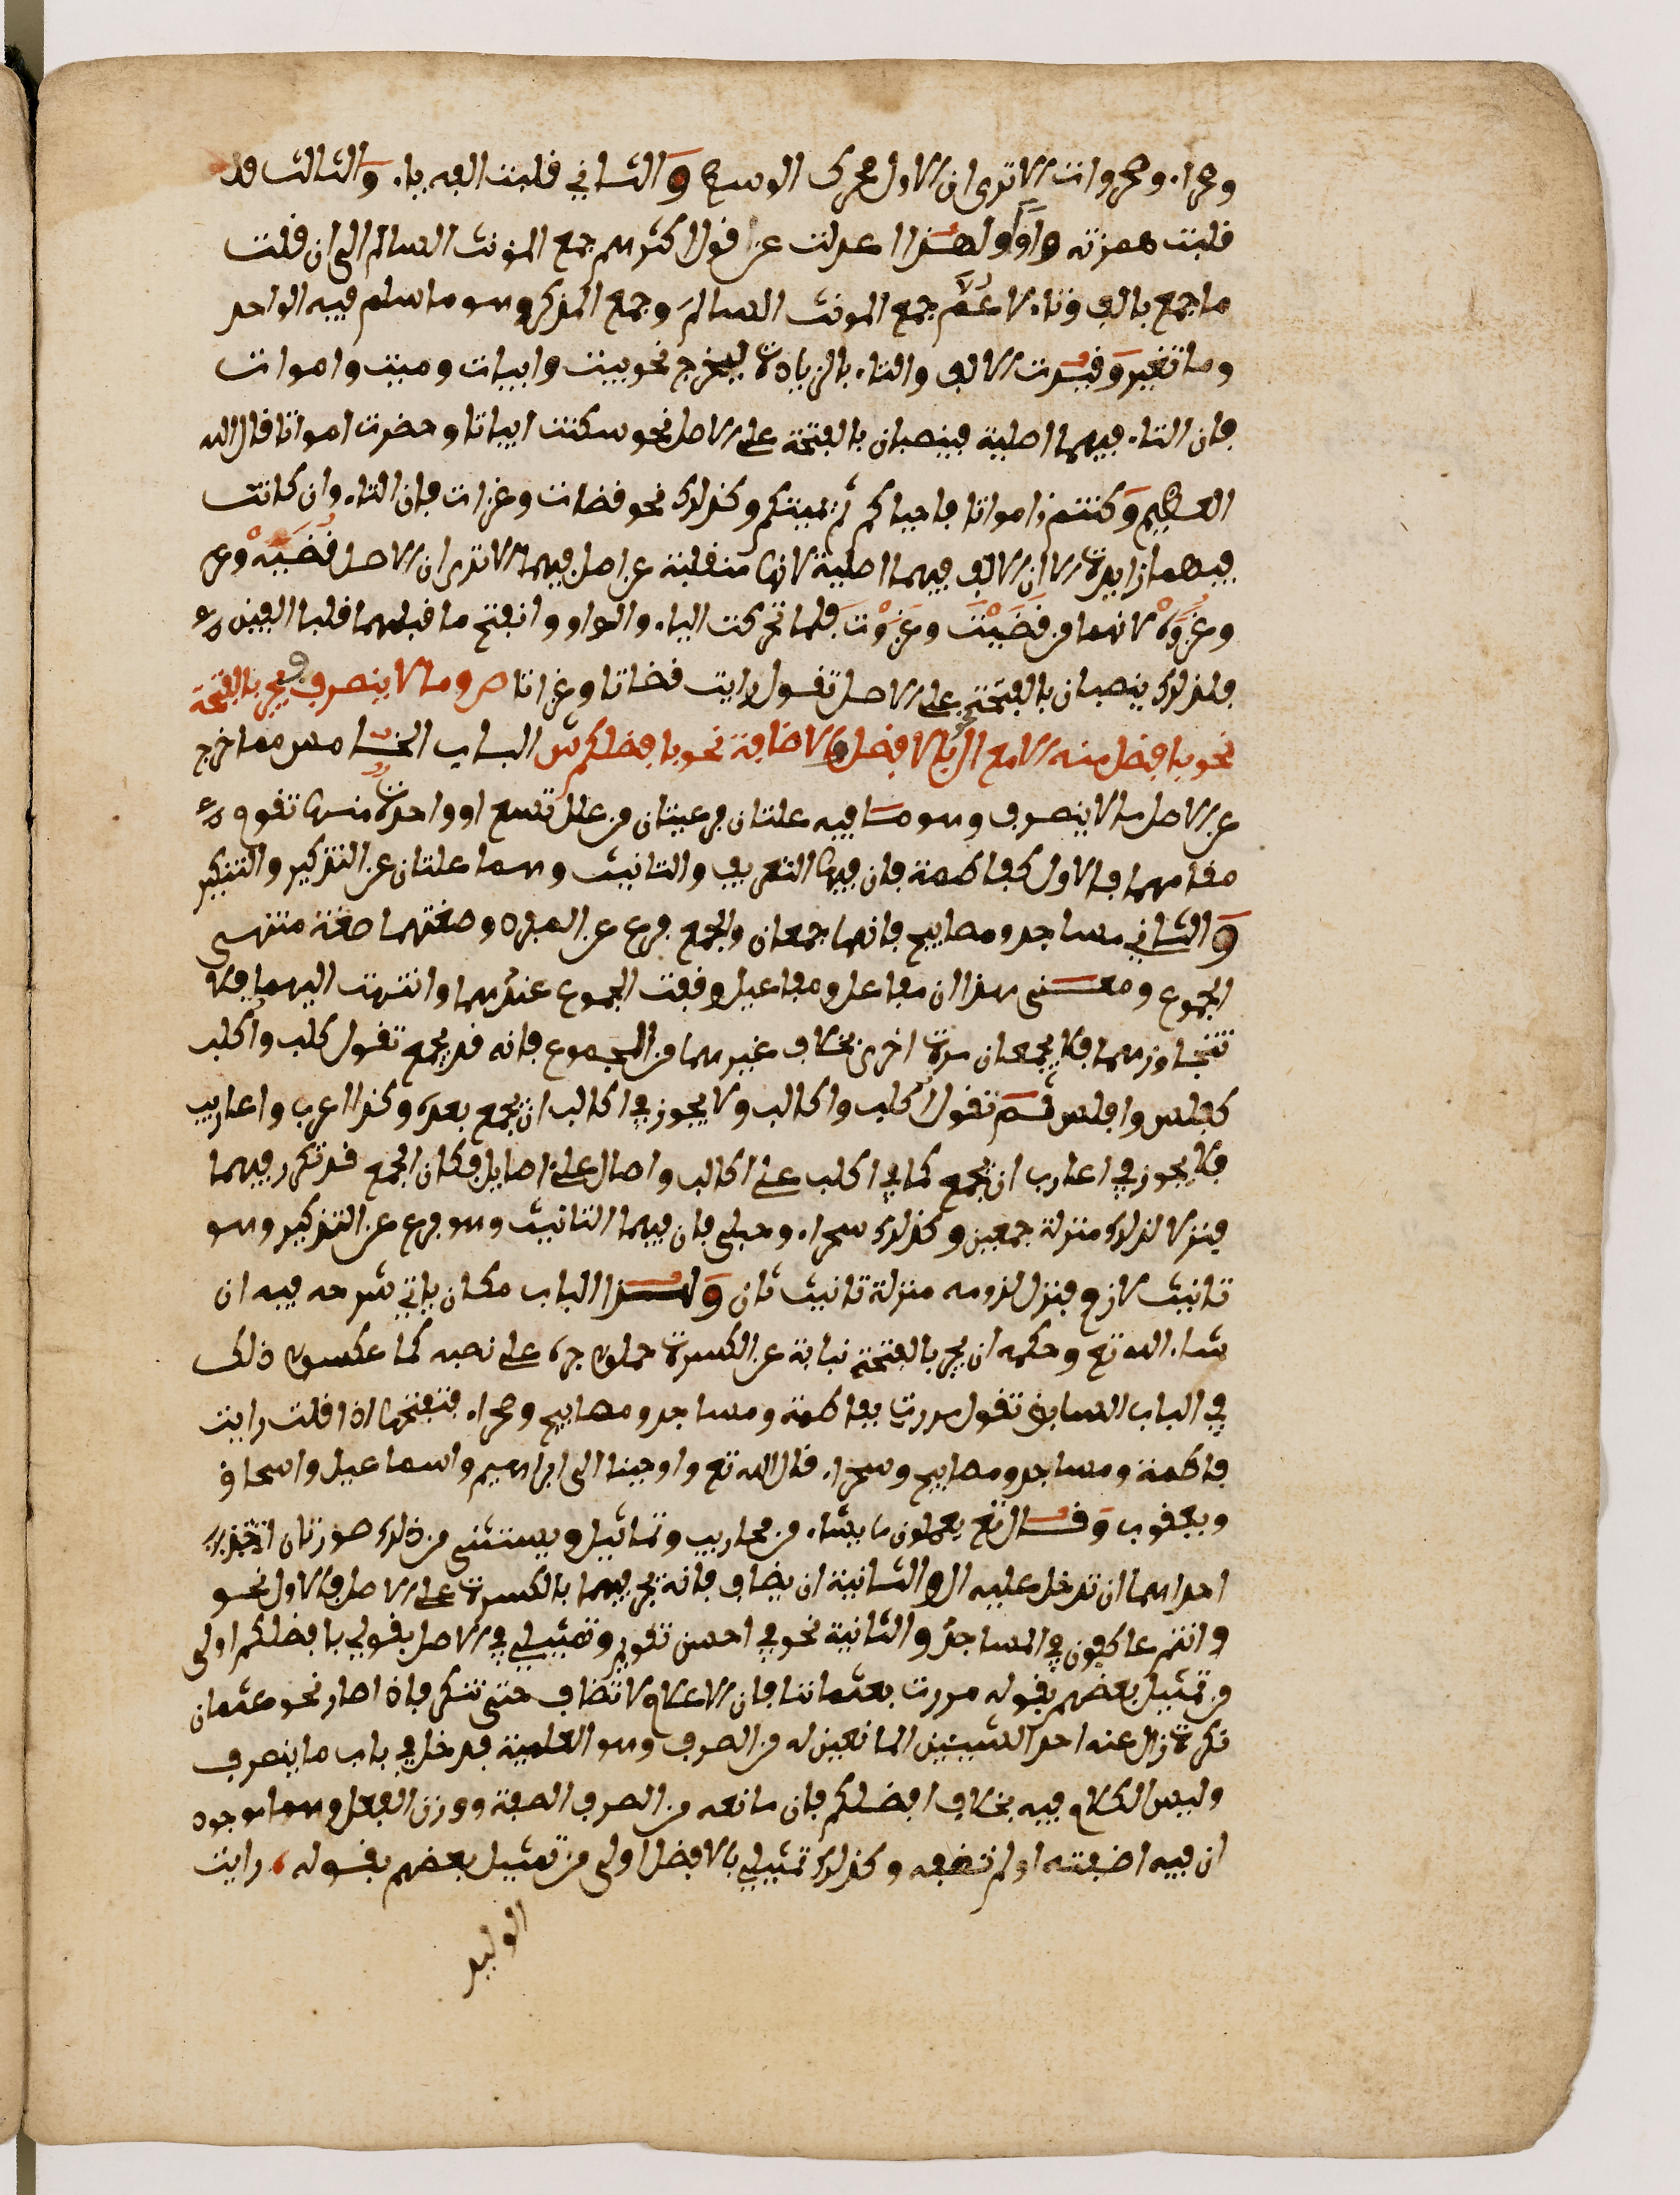 وصحراء وصحروات الا ترى ان الاول محرك الوسط والثاني قلبت الفه ياء والثالث قد
قلبت همزته واوا ولهذا عدلت عن قول اكثرهم جمع المونث السالم الى ان قلت
ما جمع بالف وتاء لا عم جمع المونث السالم وجمع المذكر وهو ما سلم فيه الواحد
وما تغير وقيدت الالف والتاء بالزيادة ليخرج نحو بيت وابيات وميت واموات
فان التاء فيهما اصلية فينصبان بالفتحة على الاصل نحو سكنت ابياتا وحضرت امواتا قال الله
العظيم وكنتم امواتا فاحياكم ثم يميتكم وكذلك نحو قضات وغزات فان التاء وان كانت
فيهما زايدة الا ان الالف فيهما اصلية لانها منقلبة عن اصل فيهما الا ترى ان الاصل قضية
وغزوة لانهما من قضيت وغزوت فلما تحركت الياء والواو وانفتح ما قبلهما قلبا الفين
فلذلك ينصبان بالفتحة على الاصل تقول رايت قضاتا وغزاتا ص وما لا ينصرف فيجر بالفتحة
نحو بافضل منه الا مع ال نحو بالافضل او بالاضافة نحو بافضلكم ش الباب الخامس مما خرج
عن الاصل ما لا ينصرف وهو ما فيه علتان فرعيتان من علل تسع او واحدة منها تقوم
مقامهما فالاول كفاطمة فان فيها التعريف والتانيث وهما علتان عن التذكير والتنكير
والثاني مساجد ومصابيح فانهما جمعان والجمع فرع عن المفرد وصغتهما صغة منتهى
الجموع ومعنى هذا ان مفاعل ومفاعيل وقفت الجموع عندهما وانتهت اليهما فلا
تتجاوزهما فلا يجمعان مرة اخرى بخلاف غيرهما من الجموع فانه قد يجمع تقول كلب واكلب
كفلس وافلس ثم تقول اكلب واكالب ولا يجوز في اكالب ان يجمع بعده وكذا اعرب واعاريب
فلا يجوز في اعارب ان يجمع كما في اكلب على اكالب واصال على اصايل فكان الجمع قد تكرر فيهما
فنزلا لذلك منزلة جمعين وكذلك صحراء وحبلى فان فيهما التانيث وهو فرع عن التذكير وهو
تانيث لازم فنزل لزومه منزلة تانيث ثان ولهذا الباب مكان ياتي شرحه فيه ان
شاء الله تع وحكمه ان يجر بالفتحة نيابة عن الكسرة حملوا جره على نصبه كما عكسوا ذلك
في الباب السابق تقول مررت بفاطمة ومساجد ومصابيح وصحراء فتفتحها اذا قلت رايت
فاطمة ومساجد ومصابيح وصحراء قال الله تع واوحينا الى ابراهيم واسماعيل واسحاق
ويعقوب وقال تع يعملون ما يشاء من محاريب وتماثيل ويستثنى من ذلك صورتان
احداهما ان تدخل عليه ال والثانية ان يضاف فانه يجر فيهما بالكسرة على الاصل فالاول نحو
وانتم عاكفون في المساجد والثانية نحو في احسن تقويم وتمثيلي في الاصل بقولي بافضلكم اولى
من تمثيل بعضهم بقوله مررت بعثماننا فان الاعلام لا تضاف حتى تنكر فاذا صار نحو عثمان
نكرة زال عنه احد السببين المانعين له من الصرف وهو العلمية فدخل في باب ما ينصرف
وليس الكلام فيه بخلاف افضلكم فان مانعه من الصرف الصفة ووزن الفعل وهما موجود
ان فيه اضفته او لم تضفه وكذلك تمثيلي بالافضل اولى من تمثيل بعضهم بقوله رايت
الوليد